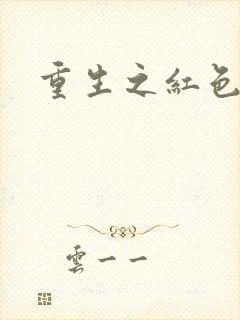 重生之紅色
雲一一